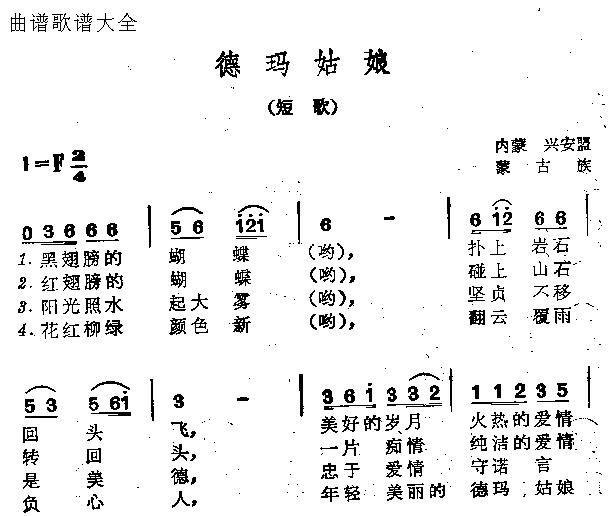 曲谱歌谱大全
德玛姑娘
(短 歌)
1=F 2/4
内蒙 兴安盟
蒙古族
0 3 6 6 6 | 5 6 i̇ 2̇ i̇ | 6 - | 6 i̇ 2̇ 6 6
1. 黑翅膀的 蝴 蝶 (哟), 扑上 岩石
2. 红翅膀的 蝴 蝶 (哟), 碰上 山石
3. 阳光照水 起大 雾 (哟), 坚贞 不移
4. 花红柳绿 颜色 新 (哟), 翻云 覆雨
5 3 5 6 i̇ | 3 - | 3 6 i̇ 3 3 2 | 1 1 2 3 5
回 头 飞, 美好的岁月 火热的爱情
转 回 头, 一片 痴情 纯洁的爱情
是 美 德, 忠于 爱情 守诺 言
负 心 人, 年轻 美丽的 德玛 姑娘